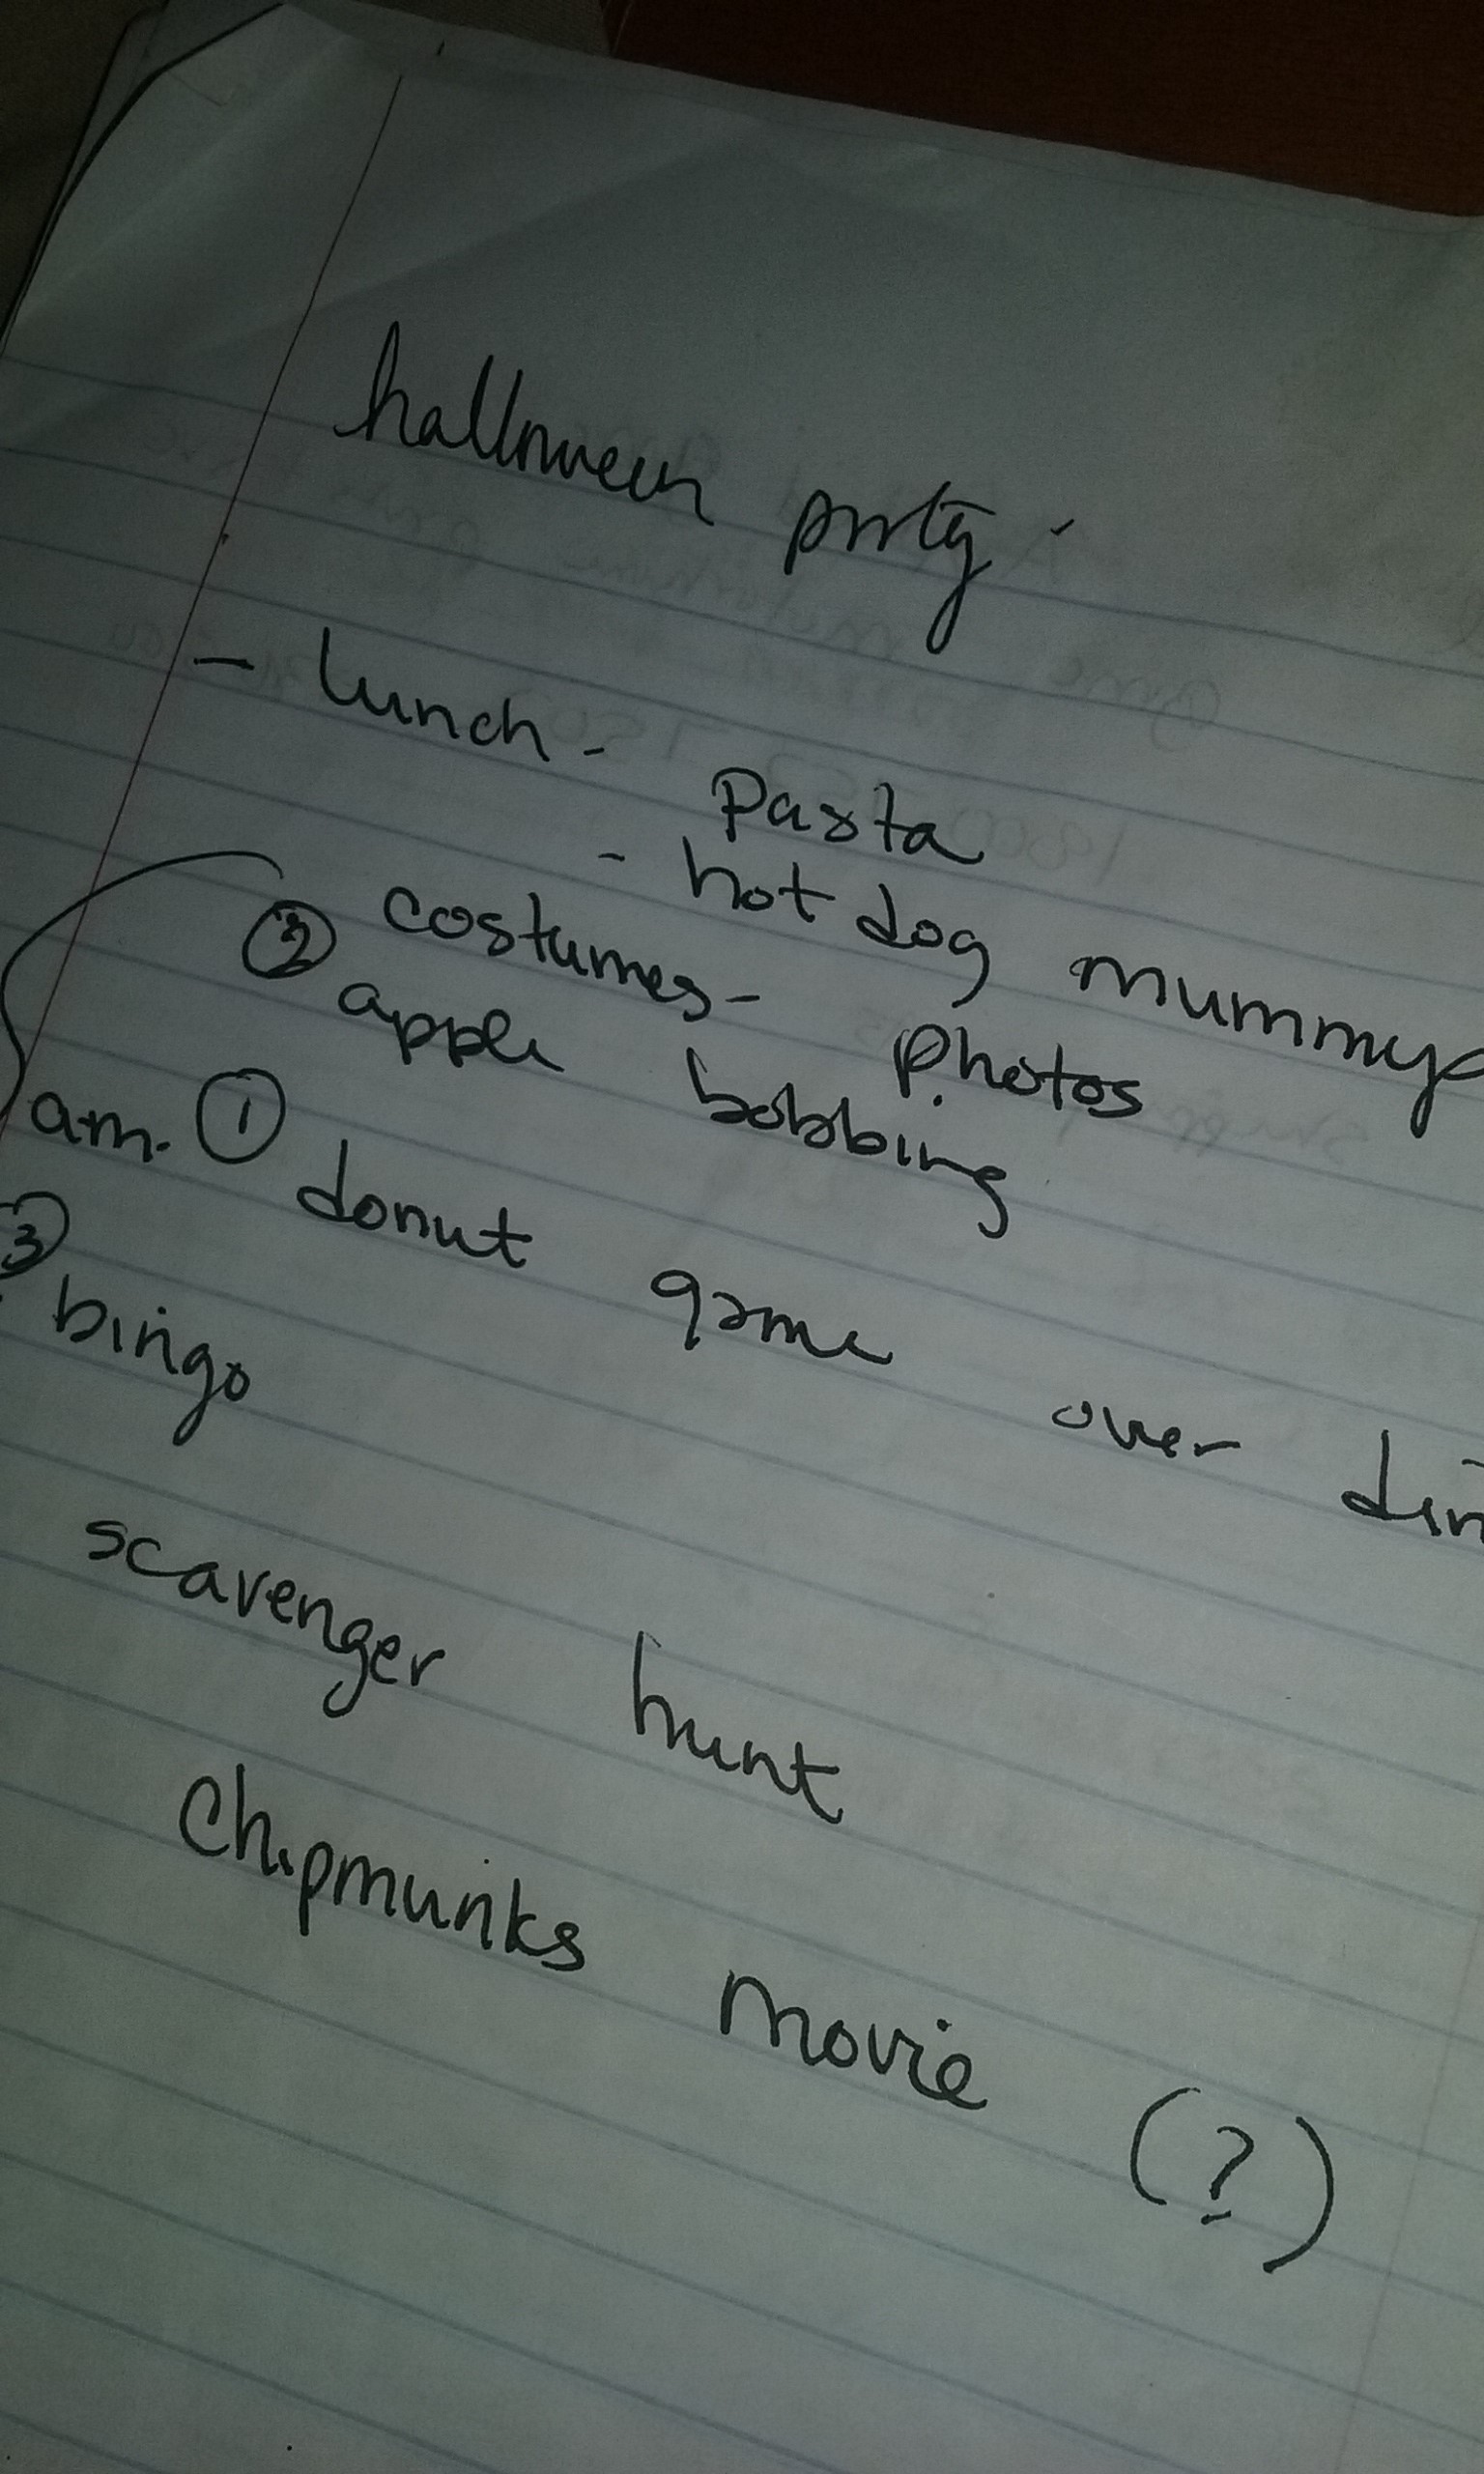 halloween party -
- lunch - Pasta
- hot dog mummy
costumes - Photos
② apple bobbing
am. ① donut game over
③ bingo
scavenger hunt
Chipmunks movie (?)